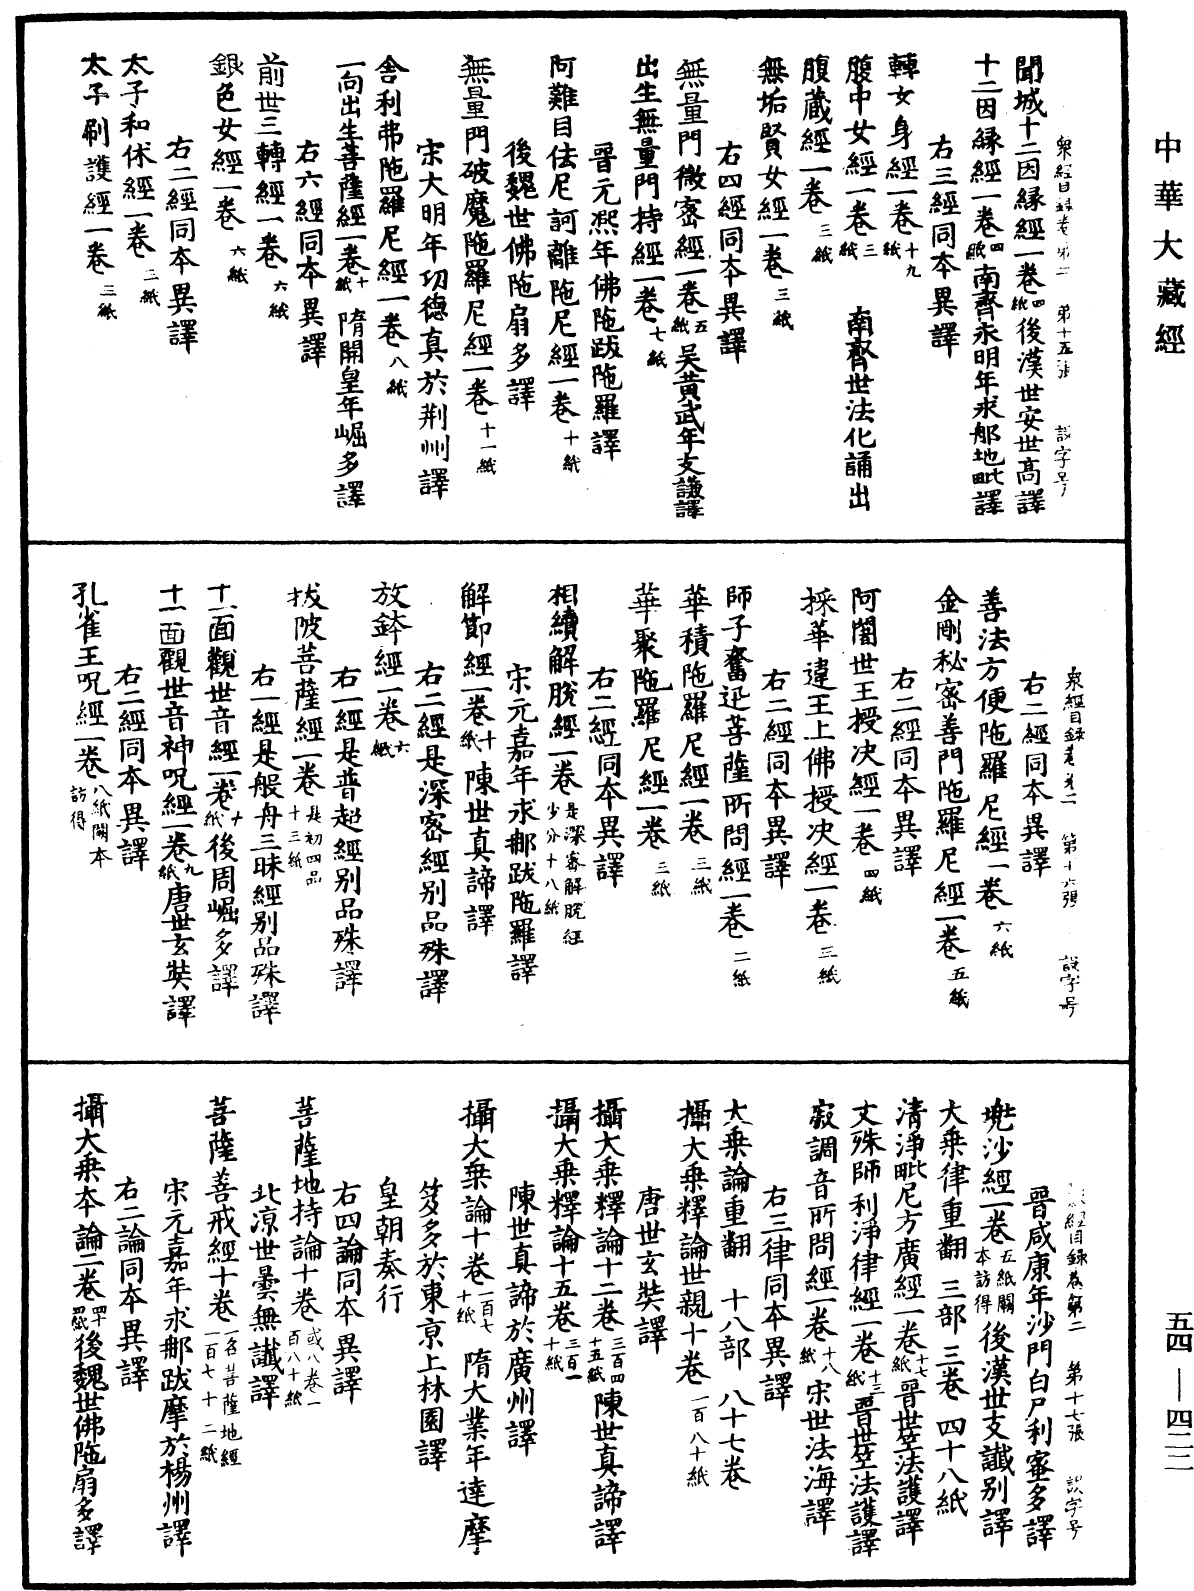 中華大藏經
衆經目錄卷第二　第十五張　設字号
聞城十二因緣經一卷四紙後漢世安世高譯
十二因緣經一卷四紙南齊永明年求那地毗譯
右三經同本異譯
轉女身經一卷十九紙
腹中女經一卷三紙　南齊世法化誦出
腹藏經一卷三紙
無垢賢女經一卷三紙
右四經同本異譯
無量門微密經一卷五紙吳黃武年支謙譯
出生無量門持經一卷七紙
晉元熙年佛陁跋陁羅譯
阿難目佉尼訶離陁尼經一卷十紙
後魏世佛陁扇多譯
無量門破魔陁羅尼經一卷十一紙
宋大明年功德真於荆州譯
舍利弗陁羅尼經一卷八紙
一向出生菩薩經一卷十紙隋開皇年崛多譯
右六經同本異譯
前世三轉經一卷六紙
銀色女經一卷六紙
右二經同本異譯
太子和休經一卷三紙
太子刷護經一卷三紙
衆經目錄卷第二　第十六張　設字号
右二經同本異譯
善法方便陁羅尼經一卷六紙
金剛秘密善門陁羅尼經一卷五紙
右二經同本異譯
阿闍世王授决經一卷四紙
採華違王上佛授决經一卷三紙
右二經同本異譯
師子奮迅菩薩所問經一卷二紙
華積陁羅尼經一卷三紙
華聚陁羅尼經一卷三紙
右二經同本異譯
相續解脫經一卷是深密解脫經少分十八紙
宋元嘉年求那跋陁羅譯
解節經一卷十紙陳世真諦譯
右二經是深密經别品殊譯
放鉢經一卷六紙
右一經是普超經别品殊譯
拔陂菩薩經一卷是初四品十三紙
右一經是般舟三昧經别品殊譯
十一面觀世音經一卷十紙後周崛多譯
十一面觀世音神呪經一卷九紙唐世玄奘譯
右二經同本異譯
孔雀王呪經一卷八紙闕本訪得
衆經目錄卷第二　第十七張　設字号
晉咸康年沙門白尸利蜜多譯
兠沙經一卷五紙闕本訪得後漢世支讖别譯
大乘律重翻　三部三卷　四十八紙
清淨毗尼方廣經一卷十七紙晉世竺法護譯
文殊師利淨律經一卷十三紙晉世竺法護譯
寂調音所問經一卷十八紙宋世法海譯
右三律同本異譯
大乘論重翻　十八部　八十七卷
攝大乘釋論世親十卷一百八十紙
唐世玄奘譯
攝大乘釋論十二卷三百四十五紙陳世真諦譯
攝大乘釋論十五卷三百一十紙
陳世真諦於廣州譯
攝大乘論十卷一百七十紙隋大業年達摩
笈多於東京上林園譯
皇朝奏行
右四論同本異譯
菩薩地持論十卷或八卷一百八十紙
北凉世曇無讖譯
菩薩善戒經十卷一名菩薩地經一百七十二紙
宋元嘉年求那跋摩於楊州譯
右二論同本異譯
攝大乘本論二卷四十紙後魏世佛陁扇多譯
五四—四二二